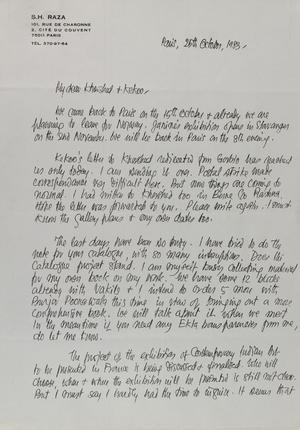 S.H. RAZA
101, RUE DE CHARONNE
2, CITÉ DU COUVENT
75011 PARIS
TÉL. 370-97-64
Paris, 26th October, 1983.
My dear Khorshed + Kekoo.
We came back to Paris on the 19th October + already we are
planning to leave for Norway. Janine's exhibition opens in Stavanger
on the 3rd November. We will be back in Paris on the 8th evening.
Kekoo's letter to Khorshed indicated from Gorbio has reached
us only today. I am sending it over. Postal strike made
correspondance very difficult here. But now things are coming to
normal. I had written to Khorshed too in
Hope the letter was forwarded to you. Please write again. I must
know the gallery plans + your own dates too.
The last days have been so busy. I have tried to do the
note for your catalogue, with so many interruptions. Does the
Catalogue project stand. I am myself busy collecting material
for my own book on my work. We have some 12 blocks
already with Vakils + I intend to order some more with
this time in view of bringing out a more
comprehensive book. We will talk about it when we meet
In the meantime if you need any Ektas from me,
do let me know.
The project of the exhibition of Contemporary Indian Art
to be presented in France is being discussed + finalised. Who will
choose, what + when the exhibition will be presented is still not clear.
But I must say I hardly had the time to enquire. It seems that